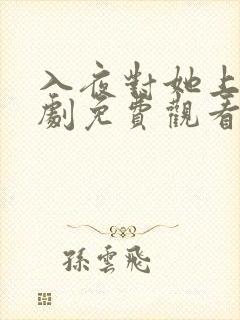 入夜對她上
劇免費觀看
孫雲飛